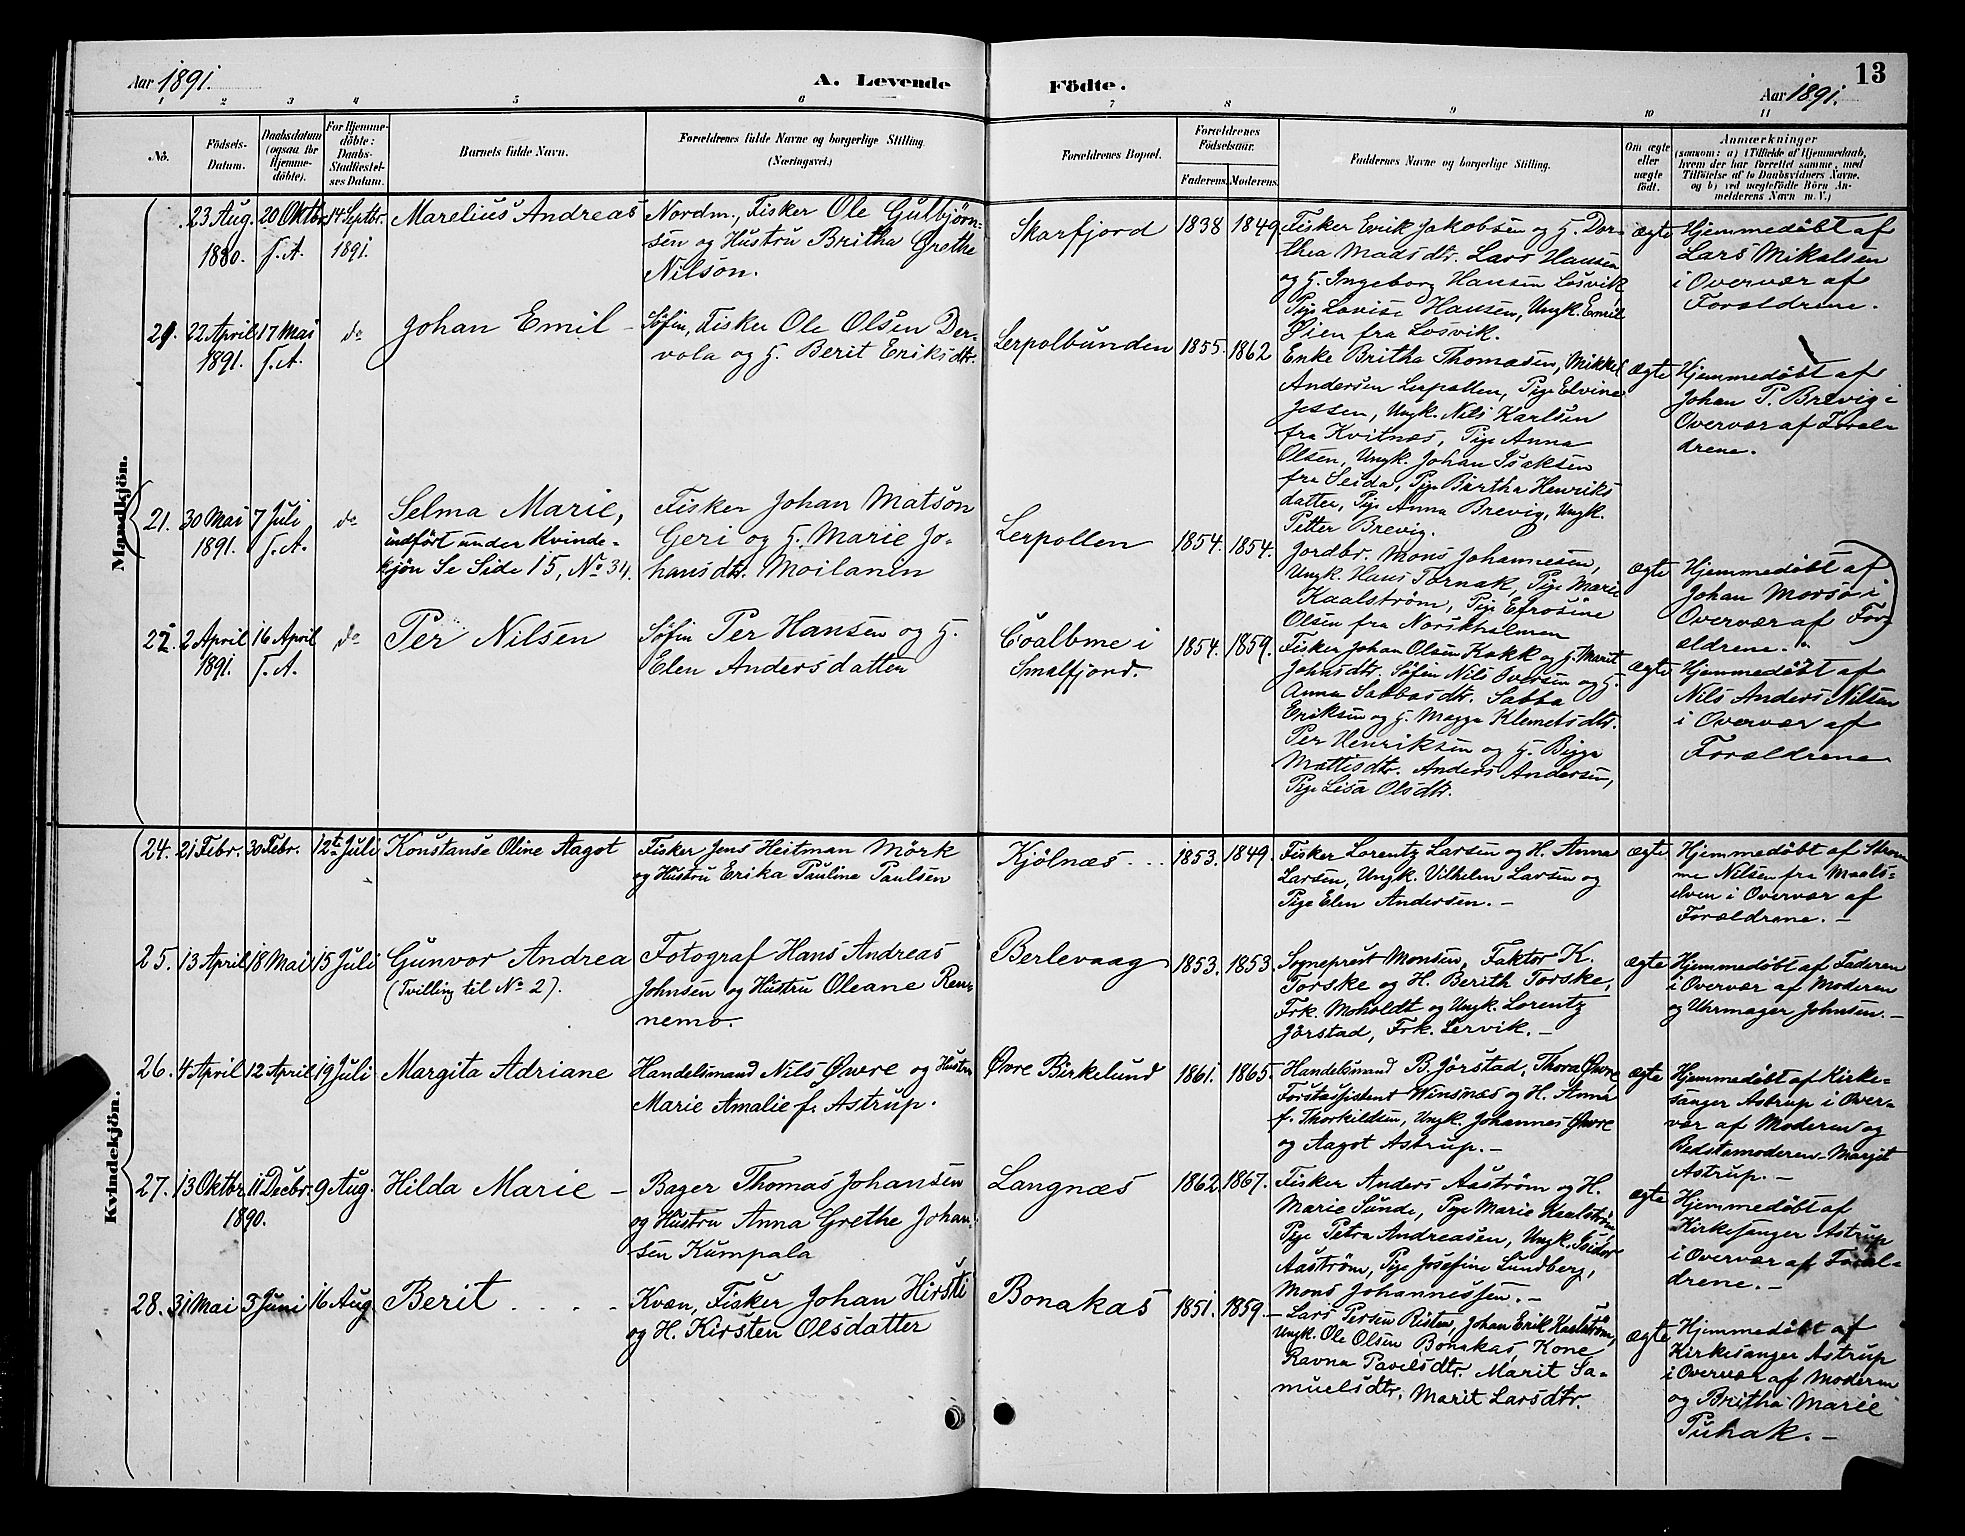 Aar 1891.
A. Levende
Födte.
Aar 1891.
13
1 2 3 4 5 6 7 8 9 10 11
No.
Födsels-
Datum.
Daabsdatum
(ogsaa for
Hjemme-
döbte).
For Hjemme-
döbte:
Daabs-
Stadfæstel-
ses Datum.
Barnets fulde Navn.
Forældrenes fulde Navne og borgerlige Stilling
(Næringsvei.)
Forældrenes Bopæl.
Forældrenes
Födselsaar.
Faderens. Moderens.
Faddernes Navne og borgerlige Stilling.
Om ægte
eller
uægte
födt.
Anmærkninger
(saasom: a) i Tilfælde af Hjemmedaab,
hvem der har forrettet samme, med
Tilföielse af to Daabsvidners Navne.
og b) ved uægtefödte Börn An-
melderens Navn m. V.)
Mandkjön.
23 Aug.
1880.
20 Oktbr.
s. A.
14 Septbr.
1891.
Marelius Andreas
Nordm., Fisker Ole Gulbjørn-
sen og Hustru Britha Grethe
Nilsøn.
Skarfjord
1838 1849.
Fisker Erik Jakobsen og H. Dor-
thea Madsdtr. Lars Hansen
og H. Ingeborg Hansen Losvik
Pige Lovise Hansen, Ungk. Emil
Øien fra Losvik.
ægte
Hjemmedøbt af
Lars Mikalsen
i Overvær af
Forældrene.
21.
22 April
1891.
17 Mai
s. A.
do
Johan Emil
Søfin, Fisker Ole Olsen Der-
vola og H. Berit Eriksdtr.
Lerpolbunden
1855. 1862
Enke Britha Thomasen, Mikkel
Andersen Lerpollen, Pige Elvine
Jessen, Ungk. Nils Karlsen
fra Kvitnæs, Pige Anna
Olsen, Ungk. Johan Isaksen
fra Seida, Pige Birtha Henriks
datter, Pige Anna Brevig, Ungk.
Petter Brevig.
ægte
Hjemmedøbt af
Johan P. Brevig i
Overvær af Foræl-
drene.
21.
30 Mai
1891.
7 Juli
s. A.
do
Selma Marie,
indført under Kvinde-
kjøn Se Side 15, No 34.
Fisker Johan Matson
Geri og H. Marie Jo-
hansdtr. Moilanen
Lerpollen
1854. 1854.
Jordbr. Mons Johannesen,
Ungk. Hans Tornak, Pige Marie
Kaalström, Pige Efrosine
Olsen fra Norskholmen
ægte
Hjemmedøbt af
Johan Morsø i
Overvær af For-
ældrene.
22.
2 April
1891.
16 April
s. A.
do
Per Nilsen
Søfin Per Hansen og H.
Elen Andersdatter
Coalbme i
Smalfjord.
1854. 1859.
Fisker Johan Olsen Kokk og H. Marit
Johnsdtr. Søfin Nils Iversen og H.
Anna Sabbasdtr. Sabba
Eriksen og H. Magga Klemetsdtr.
Per Henriksen og H. Bigga
Mattisdtr. Anders Andersen,
Pige Lisa Olsdtr.
ægte
Hjemmedøbt af
Nils Anders Nilsen
i Overvær af
Forældrene
Kvindekjön.
24.
21 Febr.
30 Febr.
12te Juli
Konstanse Oline Aagot
Fisker Jens Heitman Mörk
og Hustru Erika Pauline Paulsen
Kjölnæs
1853. 1849.
Fisker Lorentz Larsen og H. Anna
Larsen, Ungk. Vilhelm Larsen og
Pige Elen Andersen.
ægte
Hjemmedøbt af
Nilsen fra Maals-
elven i Overvær af
Forældrene.
25.
13 April
18 Mai
15 Juli
Gunvor Andrea
(Tvilling til No 2).
Fotograf Hans Andreas
Johnsen og Hustru Oleane Ren-
nemo.
Berlevaag
1853. 1853
Sogneprest Monsen, Faktor K.
Torske og H. Berith Torske,
Frk. Moholdt og Ungk. Lorentz
Jörstad, Frk. Lervik.
ægte
Hjemmedøbt af Faderen
i Overvær af Moderen
og Uhrmager Johnsen.
26.
4 April
12 April
19 Juli
Margita Adriane
Handelsmand Nils Øvre og Hustru
Marie Amalie f. Astrup.
Øvre Birkelund
1861. 1865.
Handelsmand B. Jörstad, Thora Øvre
Forstassistent Winsnæs og H. Anna
f. Thorkildsen, Ungk. Johannes Øvre
og Aagot Astrup.
ægte
Hjemmedøbt af Kirke-
sanger Astrup i Over-
vær af Moderen og
Bedstemoderen Margit
Astrup.
27.
13 Oktbr.
1890.
11 Decbr.
9 Aug.
Hilda Marie
Bager Thomas Johansen
og Hustru Anna Grethe Johan-
sen Kumpala
Langnæs
1862. 1867.
Fisker Anders Aaström og H.
Marie Sunde, Pige Marie Kaalström
Pige Petra Andreasen, Ungk. Isidor
Aaström, Pige Josefine Lundberg,
Mons Johannessen.
ægte
Hjemmedøbt af
Kirkesanger Astrup
i Overvær af Foræl-
drene.
28.
31 Mai
3 Juni
16 Aug.
Berit
Kvæn, Fisker Johan Hirsti
og H. Kirsten Olsdatter
Bonakas
1851. 1859.
Lars Persen Risten, Johan Erik Kaalström,
Ungk. Ole Olsen Bonakas, Kone
Ravna Pavelsdtr. Marit Sa-
muelsdtr, Marit Larsdtr.
ægte
Hjemmedøbt af
Kirkesanger Astrup
i Overvær af Moderen
og Britha Marie
Puhak.